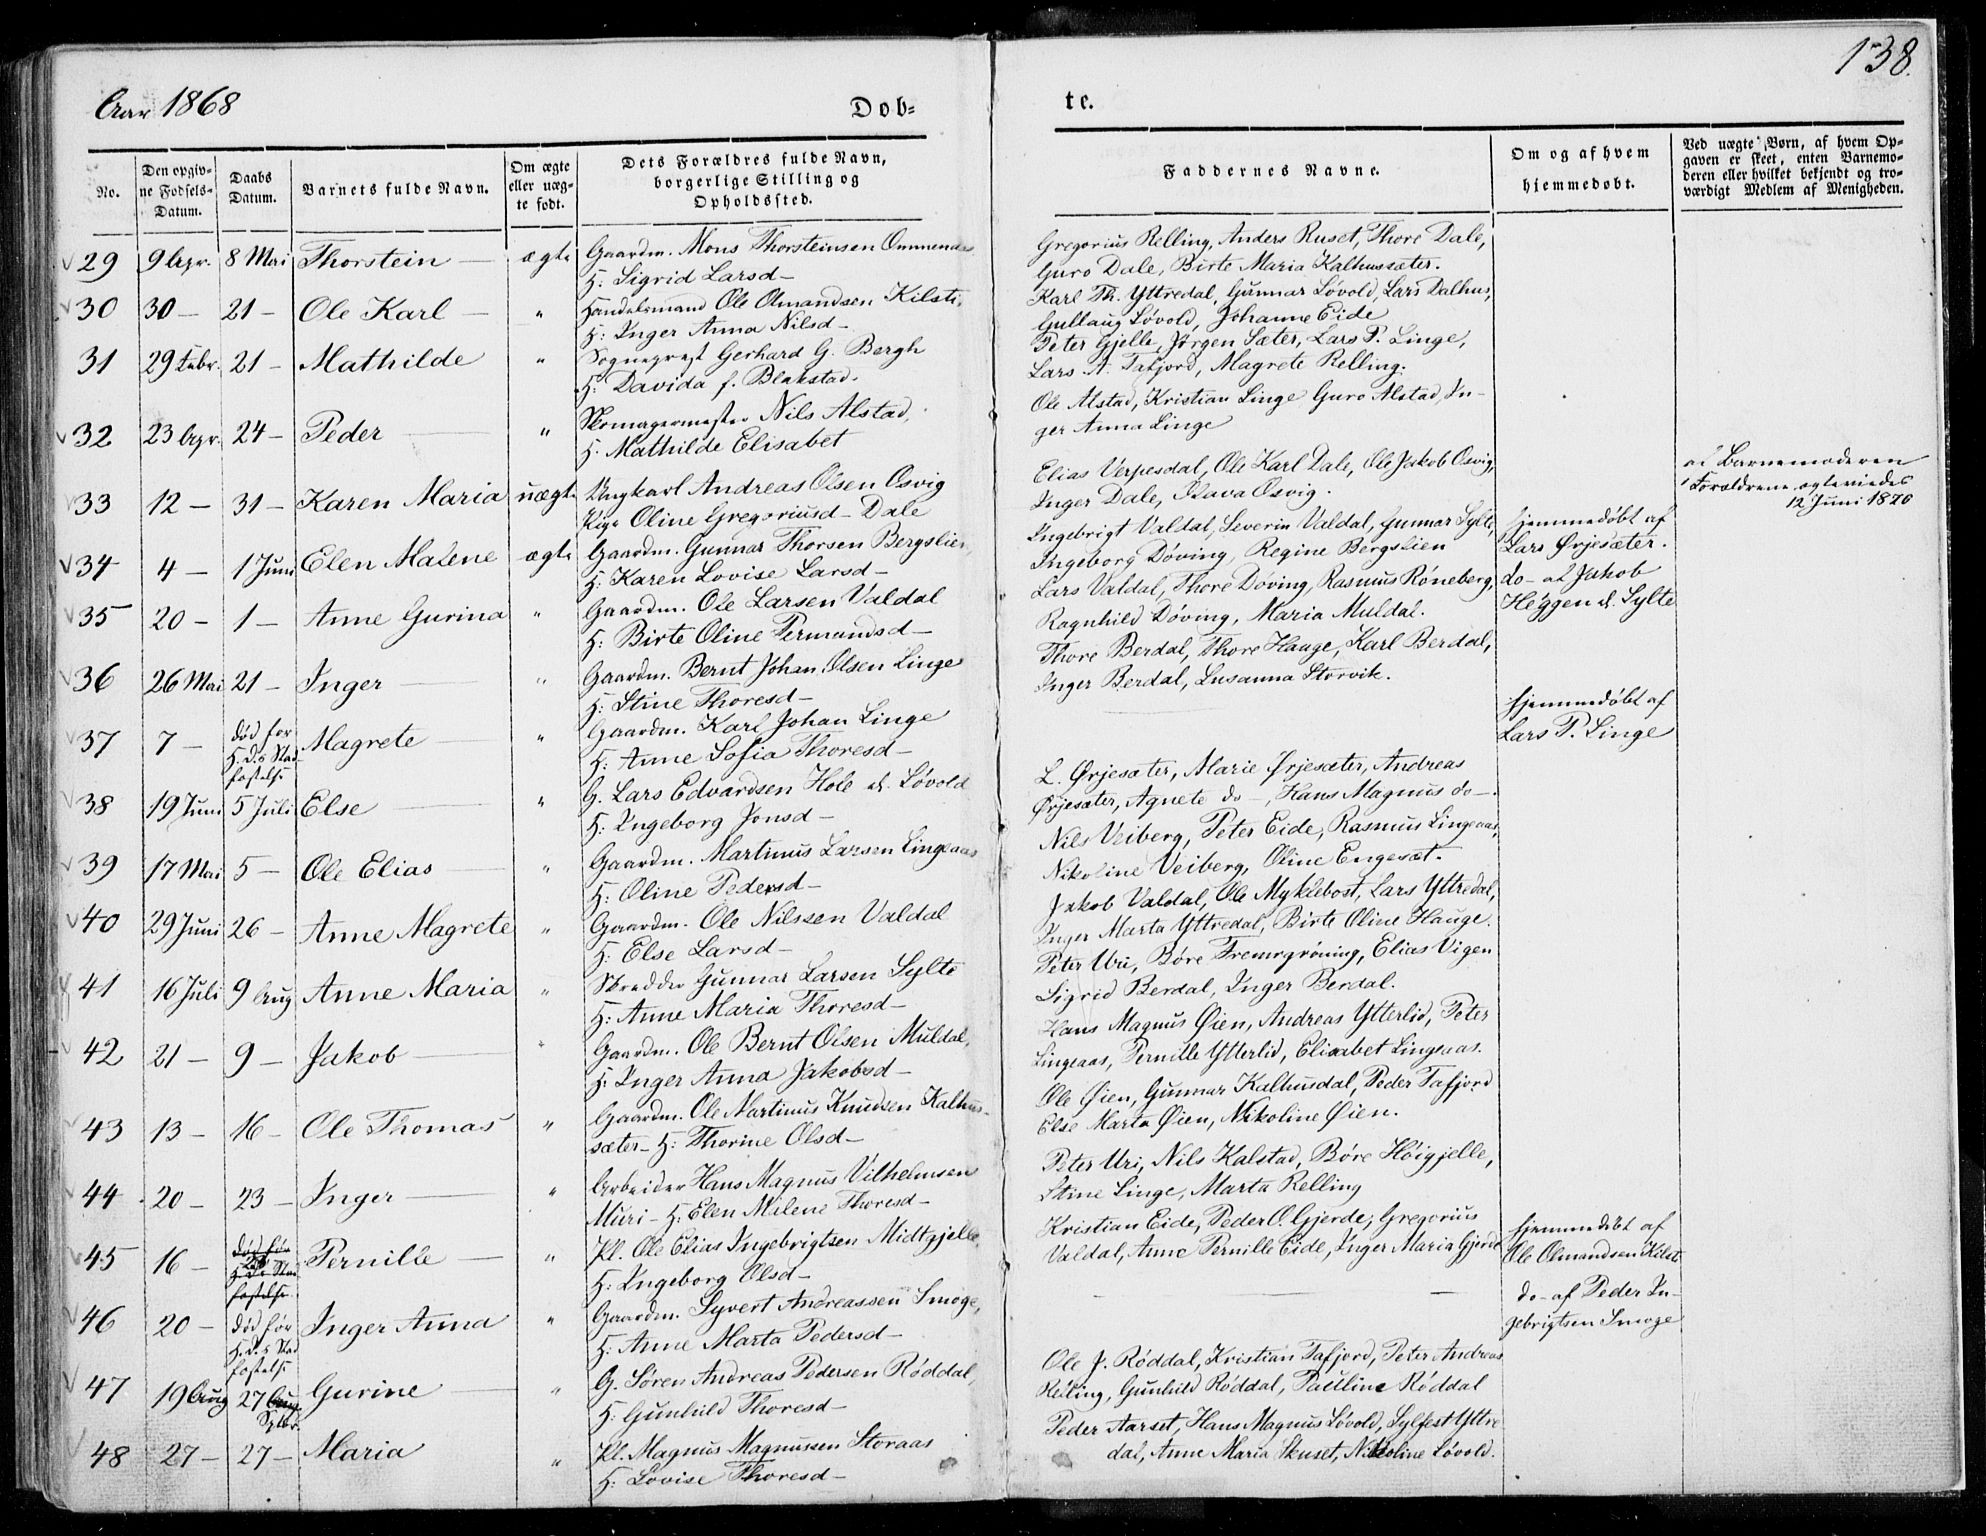 138.
Aar 1868
Døb-
te.
No.
Den opgiv-
ne Fødsels-
Datum.
Daabs
Datum.
Barnets fulde Navn.
Om ægte
eller uæg-
te født.
Dets Forældres fulde Navn,
borgerlige Stilling og
Opholdssted.
Faddernes Navne.
Om og af hvem
hjemmedøbt.
Ved uægte Børn, af hvem Op-
gaven er skeet, enten Barnemo-
deren eller hvilket bekjendt og tro-
værdigt Medlem af Menigheden.
29 9 Apr. 8 Mai Thorstein — ægte Gaardm. Mons Thorsteinsen Ommendal
H: Sigrid Larsd—
Gregorius Relling, Anders Ruset, Thore Dale,
Guro Dale, Birte Maria Kalhussæter.
30 30 — 21 — Ole Karl — " Handelsmand Ole Olmandsen Kilsti,
H: Inger Anna Nilsd—
Karl Th. Yttredal, Gunnar Løvold, Lars Dalhus,
Gullaug Løvold, Johanne Eide
31 29 Febr. 21 — Mathilde " Sogneprest Gerhard G. Bergh
H: Davida f. Blakstad.
Peter Gjelle, Jørgen Sæter, Lars P. Linge,
Lars A. Tafjord, Magrete Relling.
32 23 Apr. 24 — Peder — " Skomagermester Nils Alstad,
H: Mathilde Elisabet
Ole Alstad, Kristian Linge Guro Alstad, In-
ger Anna Linge
33 12 — 31 — Karen Maria uægte Ungkarl Andreas Olsen Osvig
Pige Oline Gregoriusd— Dale
Elias Verpesdal, Ole Karl Dale, Ole Jakob Osvig,
Inger Dale, Osvig.
af Barnemoderen
Forældrene egteviedes
12 Juni 1870
34 4 — 1 Juni Elen Malene ægte Gaardm. Gunnar Thorsen Bergslien,
H: Karen Lovise Larsd—
Ingebrigt Valdal, Severin Valdal, Gunnar Sylte,
Ingeborg Døving, Regine Bergslien
hjemmedøbt af
Lars Ørjesæter.
35 20 — 1 — Anne Gurina " Gaardm. Ole Larsen Valdal
H: Birte Oline Permandsd—
Lars Valdal, Thore Døving, Rasmus Røneberg,
Ragnhild Døving, Maria Muldal.
do— af Jakob
Heggen Sylte
36 26 Mai 21 — Inger — " Gaardm. Bernt Johan Olsen Linge
H: Stine Thoresd—
Thore Berdal, Thore Hauge, Karl Berdal,
Inger Berdal, Susanna Storvik.
37 7 — død før
H. d.s Stad-
fæstelse Magrete — " Gaardm. Karl Johan Linge
H: Anne Sofia Thoresd—
hjemmedøbt af
Lars P. Linge
38 19 Juni 5 Juli Else — " G. Lars Edvardsen Hole Løvold
H: Ingeborg Jonsd—
L. Ørjesæter, Marie Ørjesæter, Andreas
Ørjesæter, Agnete do—, Hans Magnus do—.
39 17 Mai 5 — Ole Elias — " Gaardm. Martinus Larsen Lingeaas
H: Oline Pedersd—
Nils Veiberg, Peter Eide, Rasmus Lingeaas,
Nikoline Veiberg, Oline Engeset.
40 29 Juni 26 — Anne Magrete " Gaardm. Ole Nilssen Valdal
H: Else Larsd—
Jakob Valdal, Ole Myklebost, Lars Yttredal,
Inger Marta Yttredal, Birte Oline Hauge.
41 16 Juli 9 Aug Anne Maria " Skrædder Gunnar Larsen Sylte
H: Anne Maria Thoresd—
Peter Uri, Børe Fremrgrøning, Elias Vigen
Sigrid Berdal, Inger Berdal.
42 21 — 9 — Jakob — " Gaardm. Ole Bernt Olsen Muldal,
H: Inger Anna Jakobsd—
Hans Magnus Øien, Andreas Ytterlid, Peter
Lingeaas, Pernille Ytterlid, Elisabet Lingeaas.
43 13 — 16 — Ole Thomas " Gaardm. Ole Martinus Knudsen Kalhus-
sæter— H: Thorine Olsd—
Ole Øien, Gunnar Kalhusdal, Peder Tafjord
Else Marta Øien, Nikoline Øien.
44 20 — 23 — Inger — " Arbeider Hans Magnus Vilhelmsen
Muri— H: Elen Milene Thoresd—
Peter Uri, Nils Kalstad, Børe Høigjelle,
Stine Linge, Marta Relling
45 16 — død før
H. d.s Stad
fæstelse Pernille — " Pl. Ole Elias Ingebrigtsen Midtgjelle,
H: Ingeborg Olsd—
Kristian Eide, Peder O. Gjerde, Gregorius
Valdal, Anne Pernille Eide, Inger Maria Gjerde
hjemmedøbt af
Ole Olmandsen Kilsti
46 20 — død før
H. d.s Stad
fæstelse Inger Anna " Gaardm. Syvert Andreassen Smoge,
H: Anne Marta Pedersd—
do— af Peder In-
gebrigtsen Smoge
47 19 Aug 27 Aug
Sptbr. Gurine — " G. Søren Andreas Pedersen Røddal,
H: Gunhild Thoresd—
Ole J. Røddal, Kristian Tafjord, Peter Andreas
Relling, Gunhild Røddal, Pauline Røddal
48 27 — 27 — Maria " Pl. Magnus Magnussen Storaas
H: Lovise Thoresd—
Peder Aarset, Hans Magnus Løvold, Sylfest Yttre
dal, Anne Maria Skuset, Nikoline Løvold.